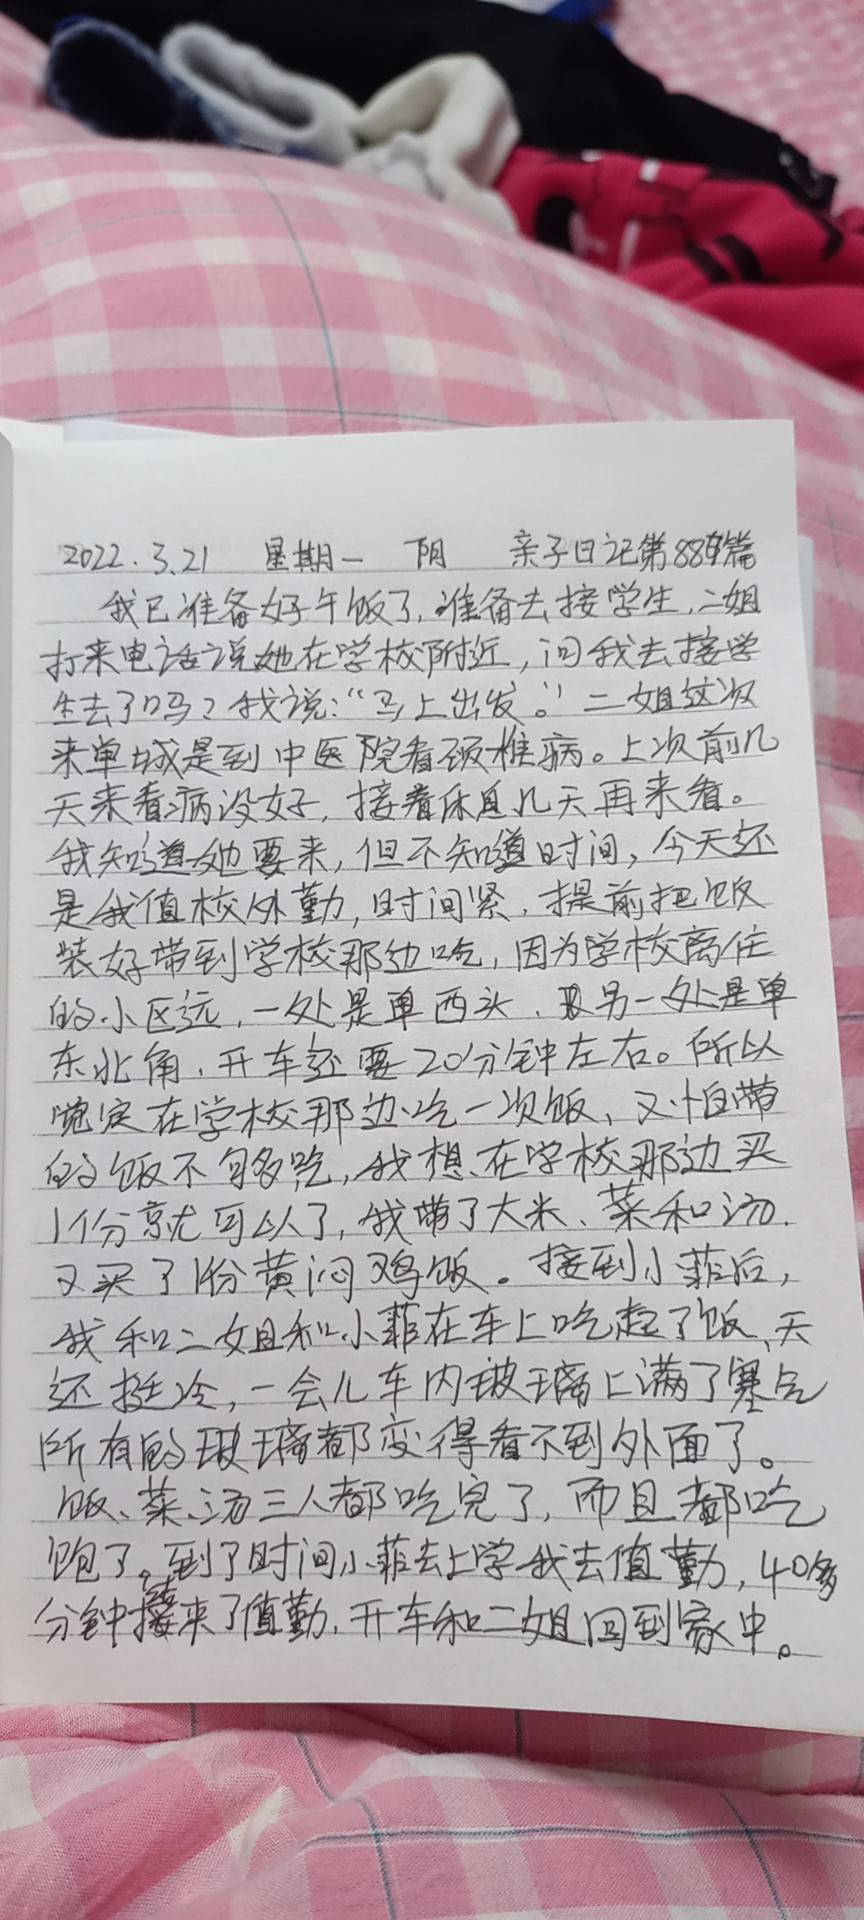 2022.3.21 星期一 阴 亲子日记第889篇
我已准备好午饭了，准备去接学生，二姐
打来电话说她在学校附近，问我去接学
生去了吗？我说：“马上出发。”二姐这次
来单城是到中医院看颈椎病。上次前几
天来看病没好，接着休息几天再来看。
我知道她要来，但不知道时间，今天还
是我值校外勤，时间紧，提前把饭
装好带到学校那边吃，因为学校离住
的小区远，一处是单西头，另一处是单
东北角，开车还要20分钟左右。所以
决定在学校那边吃一次饭，又怕带
的饭不够吃，我想在学校那边买
1份就可以了，我带了大米、菜和汤，
又买了1份黄闷鸡饭。接到小菲后，
我和二姐和小菲在车上吃起了饭，天
还挺冷，一会儿车内玻璃上满了寒气
所有的玻璃都变得看不到外面了。
饭、菜、汤三人都吃完了，而且都吃
饱了。到了时间小菲去上学我去值勤，40多
分钟结束了值勤，开车和二姐回到家中。